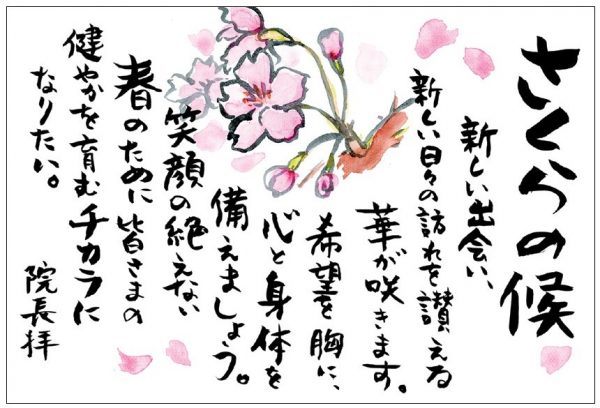 さくらの候
新しい出会い、
新しい日々の訪れを讃える
華が咲きます。
希望を胸に、
心と身体を
備えましょう。
笑顔の絶えない
春のために皆さまの
健やかを育むチカラに
なりたい。
院長拝